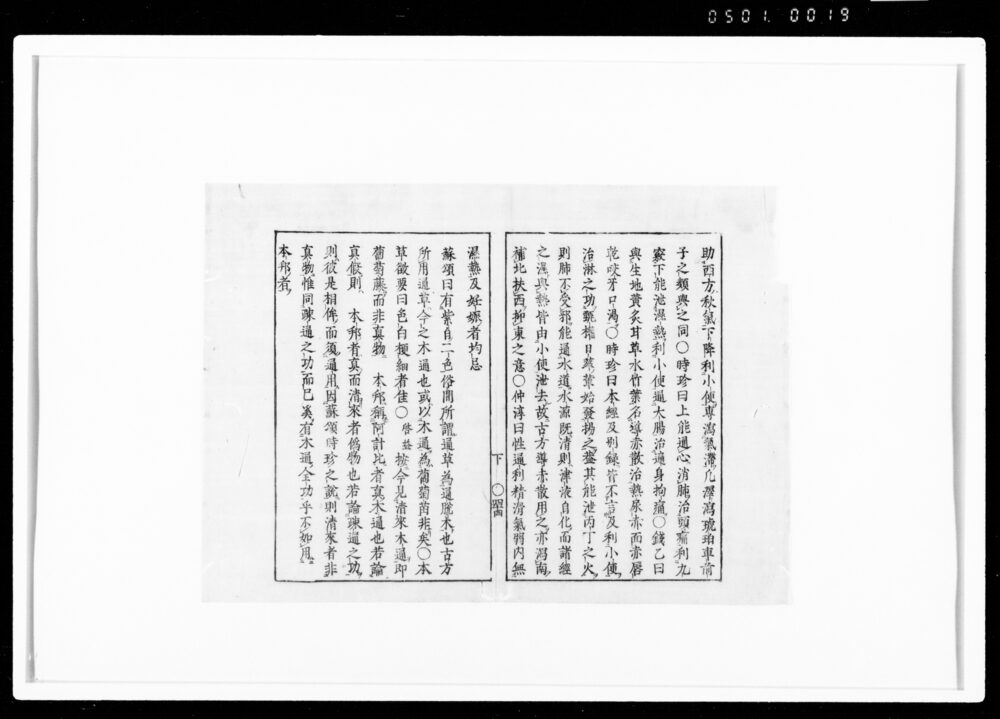 0501.0019
助西方秋氣下降利小便專瀉氣滯凡澤瀉琥珀車前
子之類與之同〇時珍曰上能通心清肺治頭痛利九
竅下能泄濕熱利小便通大腸治遍身拘痛〇錢乙曰
與生地黃炙甘草水竹葉名導赤散治熱尿赤面赤唇
乾咬牙口渴〇時珍曰本經及別錄皆不言及利小便
治淋之功甄權日華輩始發揚之蓋其能泄丙丁之火
則肺不受邪能通水道水源既清則津液自化而諸經
之濕與熱皆由小便泄去故古方導赤散用之亦瀉南
補北扶西抑東之意〇仲淳曰性通利精滑氣弱內無
下 〇四
濕熱及妊娠者均忌
蘇頌曰有紫白二色俗間所謂通草為通脫木也古方
所用通草今之木通也或以木通為葡萄苗非矣〇本
草徵要曰色白梗細者佳〇啓益按今見清來木通即
葡萄藤而非真物 本邦稱阿計比者真木通也若論
真假則 本邦者真而清來者偽物也若論疎通之功
則彼是相侔而須通用因蘇頌時珍之說則清來者非
真物惟同疎通之功而已奚有木通全功乎不如用
本邦者